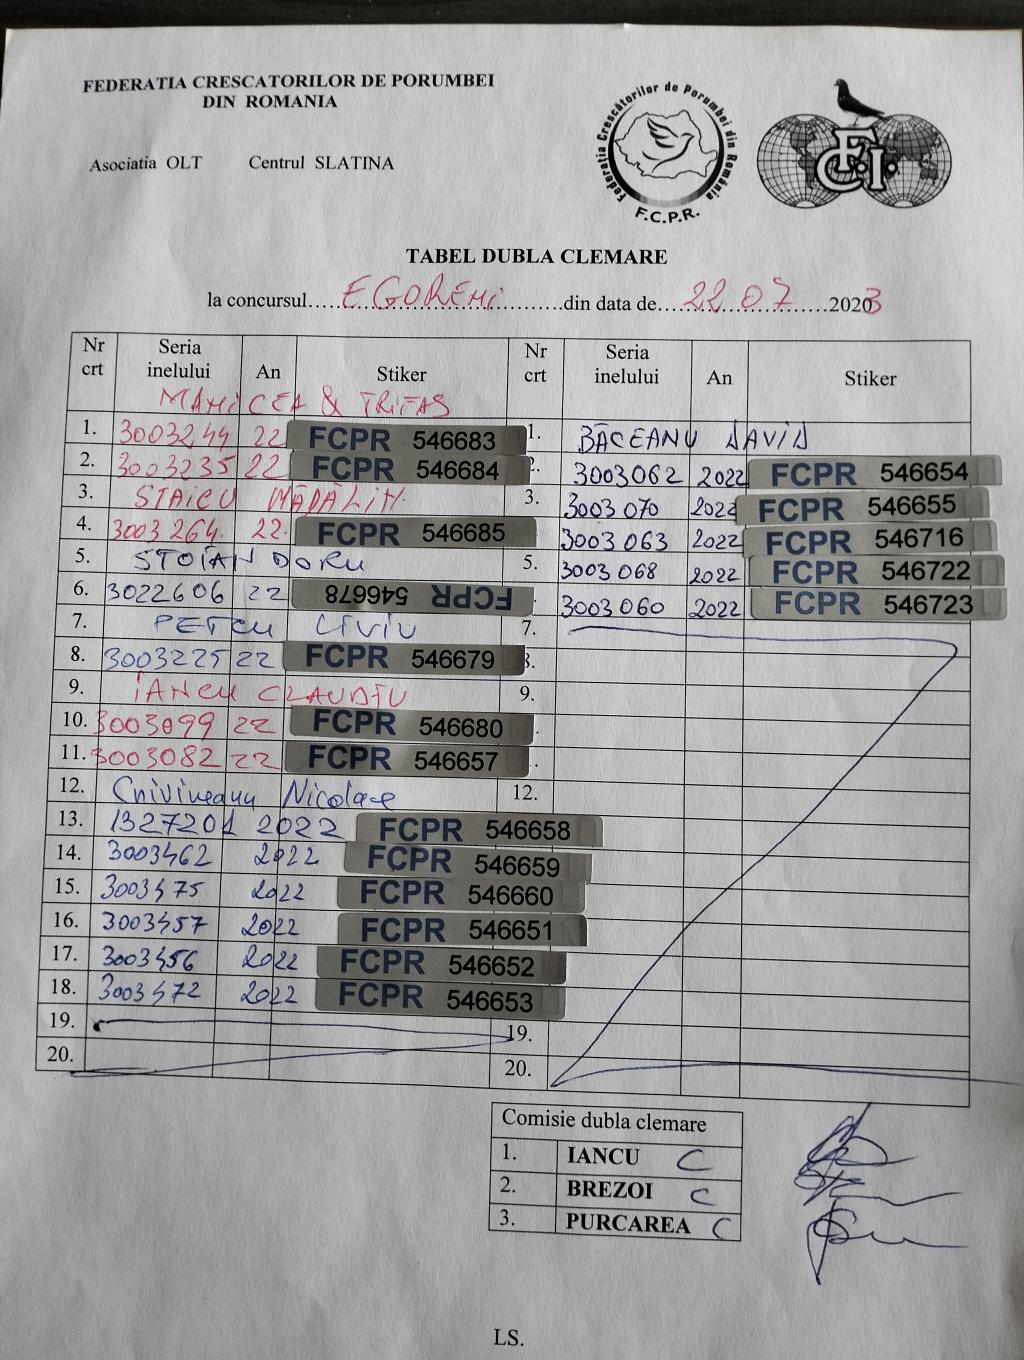 FEDERATIA CRESCATORILOR DE PORUMBEI
DIN ROMANIA
Asociatia OLT Centrul SLATINA
Federatia Crescătorilor de Porumbei din România
F.C.P.R.
F.C.I.
TABEL DUBLA CLEMARE
la concursul......EGORENI..............din data de.....22.07..........2023
Nr crt Seria inelului An Stiker
MANICEA & TRIFAS
1. 3003244 22 FCPR 546683
2. 3003235 22 FCPR 546684
3. STAICU MĂDĂLIN
4. 3003264 22 FCPR 546685
5. STOIAN DORU
6. 3022606 22 FCPR 546678
7. PETCU LIVIU
8. 3003225 22 FCPR 546679
9. IANCU CLAUDIU
10. 3003099 22 FCPR 546680
11. 3003082 22 FCPR 546657
12. Chivineanu Nicolae
13. 1327201 2022 FCPR 546658
14. 3003462 2022 FCPR 546659
15. 3003475 2022 FCPR 546660
16. 3003457 2022 FCPR 546651
17. 3003456 2022 FCPR 546652
18. 3003472 2022 FCPR 546653
19.
20.
Nr crt Seria inelului An Stiker
1. BĂCEANU DAVID
2. 3003062 2022 FCPR 546654
3. 3003070 2022 FCPR 546655
3003063 2022 FCPR 546716
5. 3003068 2022 FCPR 546722
3003060 2022 FCPR 546723
7.
8.
9.
12.
19.
20.
Comisie dubla clemare
1. IANCU C
2. BREZOI C
3. PURCAREA C
LS.